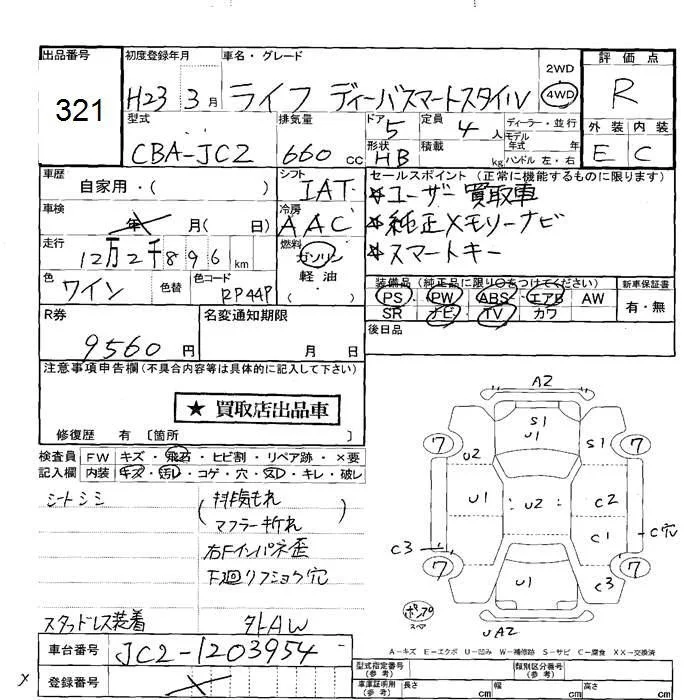 出品番号
321
初度登録年月
H23 3月
車名・グレード
ライフ ディーバスマートスタイル
2WD
4WD
評価点
R
外装 内装
E C
型式
CBA-JC2
排気量
660 cc
ドア
5
定員
4 人
ディーラー・並行
モデル
年式 年
形状
HB
積載
kg
ハンドル 左・右
車歴
自家用・( )
シフト
IAT
セールスポイント (正常に機能するものに限ります)
★ユーザー買取車
★純正メモリーナビ
★スマートキー
車検
年 月( 日)
冷房
AAC
走行
12万2千896 km
燃料
ガソリン
軽油
( )
色
ワイン
色替
色コード
RP44P
装備品 (純正品に限り○をつけてください)
PS PW ABS エアB AW
SR ナビ TV カワ
新車保証書
有・無
R券
9560 円
名変通知期限
月 日
後日品
注意事項申告欄 (不具合内容等は具体的に記入して下さい)
★ 買取店出品車
修復歴 有 〔箇所 〕
検査員 FW キズ・飛石・ヒビ割・リペア跡・×要
記入欄 内装 キズ・汚レ・コゲ・穴・欠レ・キレ・破レ
シートシミ
(排気もれ
マフラー折れ)
右Fインパネ歪
下廻リフショウ穴
スタッドレス装着
外AW
A2
S1
U1
S1
7
7
U2
U1
U2
C2
C1
C穴
C3
7
7
U1
C3
ポンプ
スペア
UA2
A-キズ E-エクボ U-凹み W-補修跡 S-サビ C-腐食 XX-交換済
車台番号
JC2-1203954
登録番号
型式指定番号
(参考)
類別区分番号
(参考)
車庫証明用
(参考)
長さ
cm
幅
cm
高さ
cm